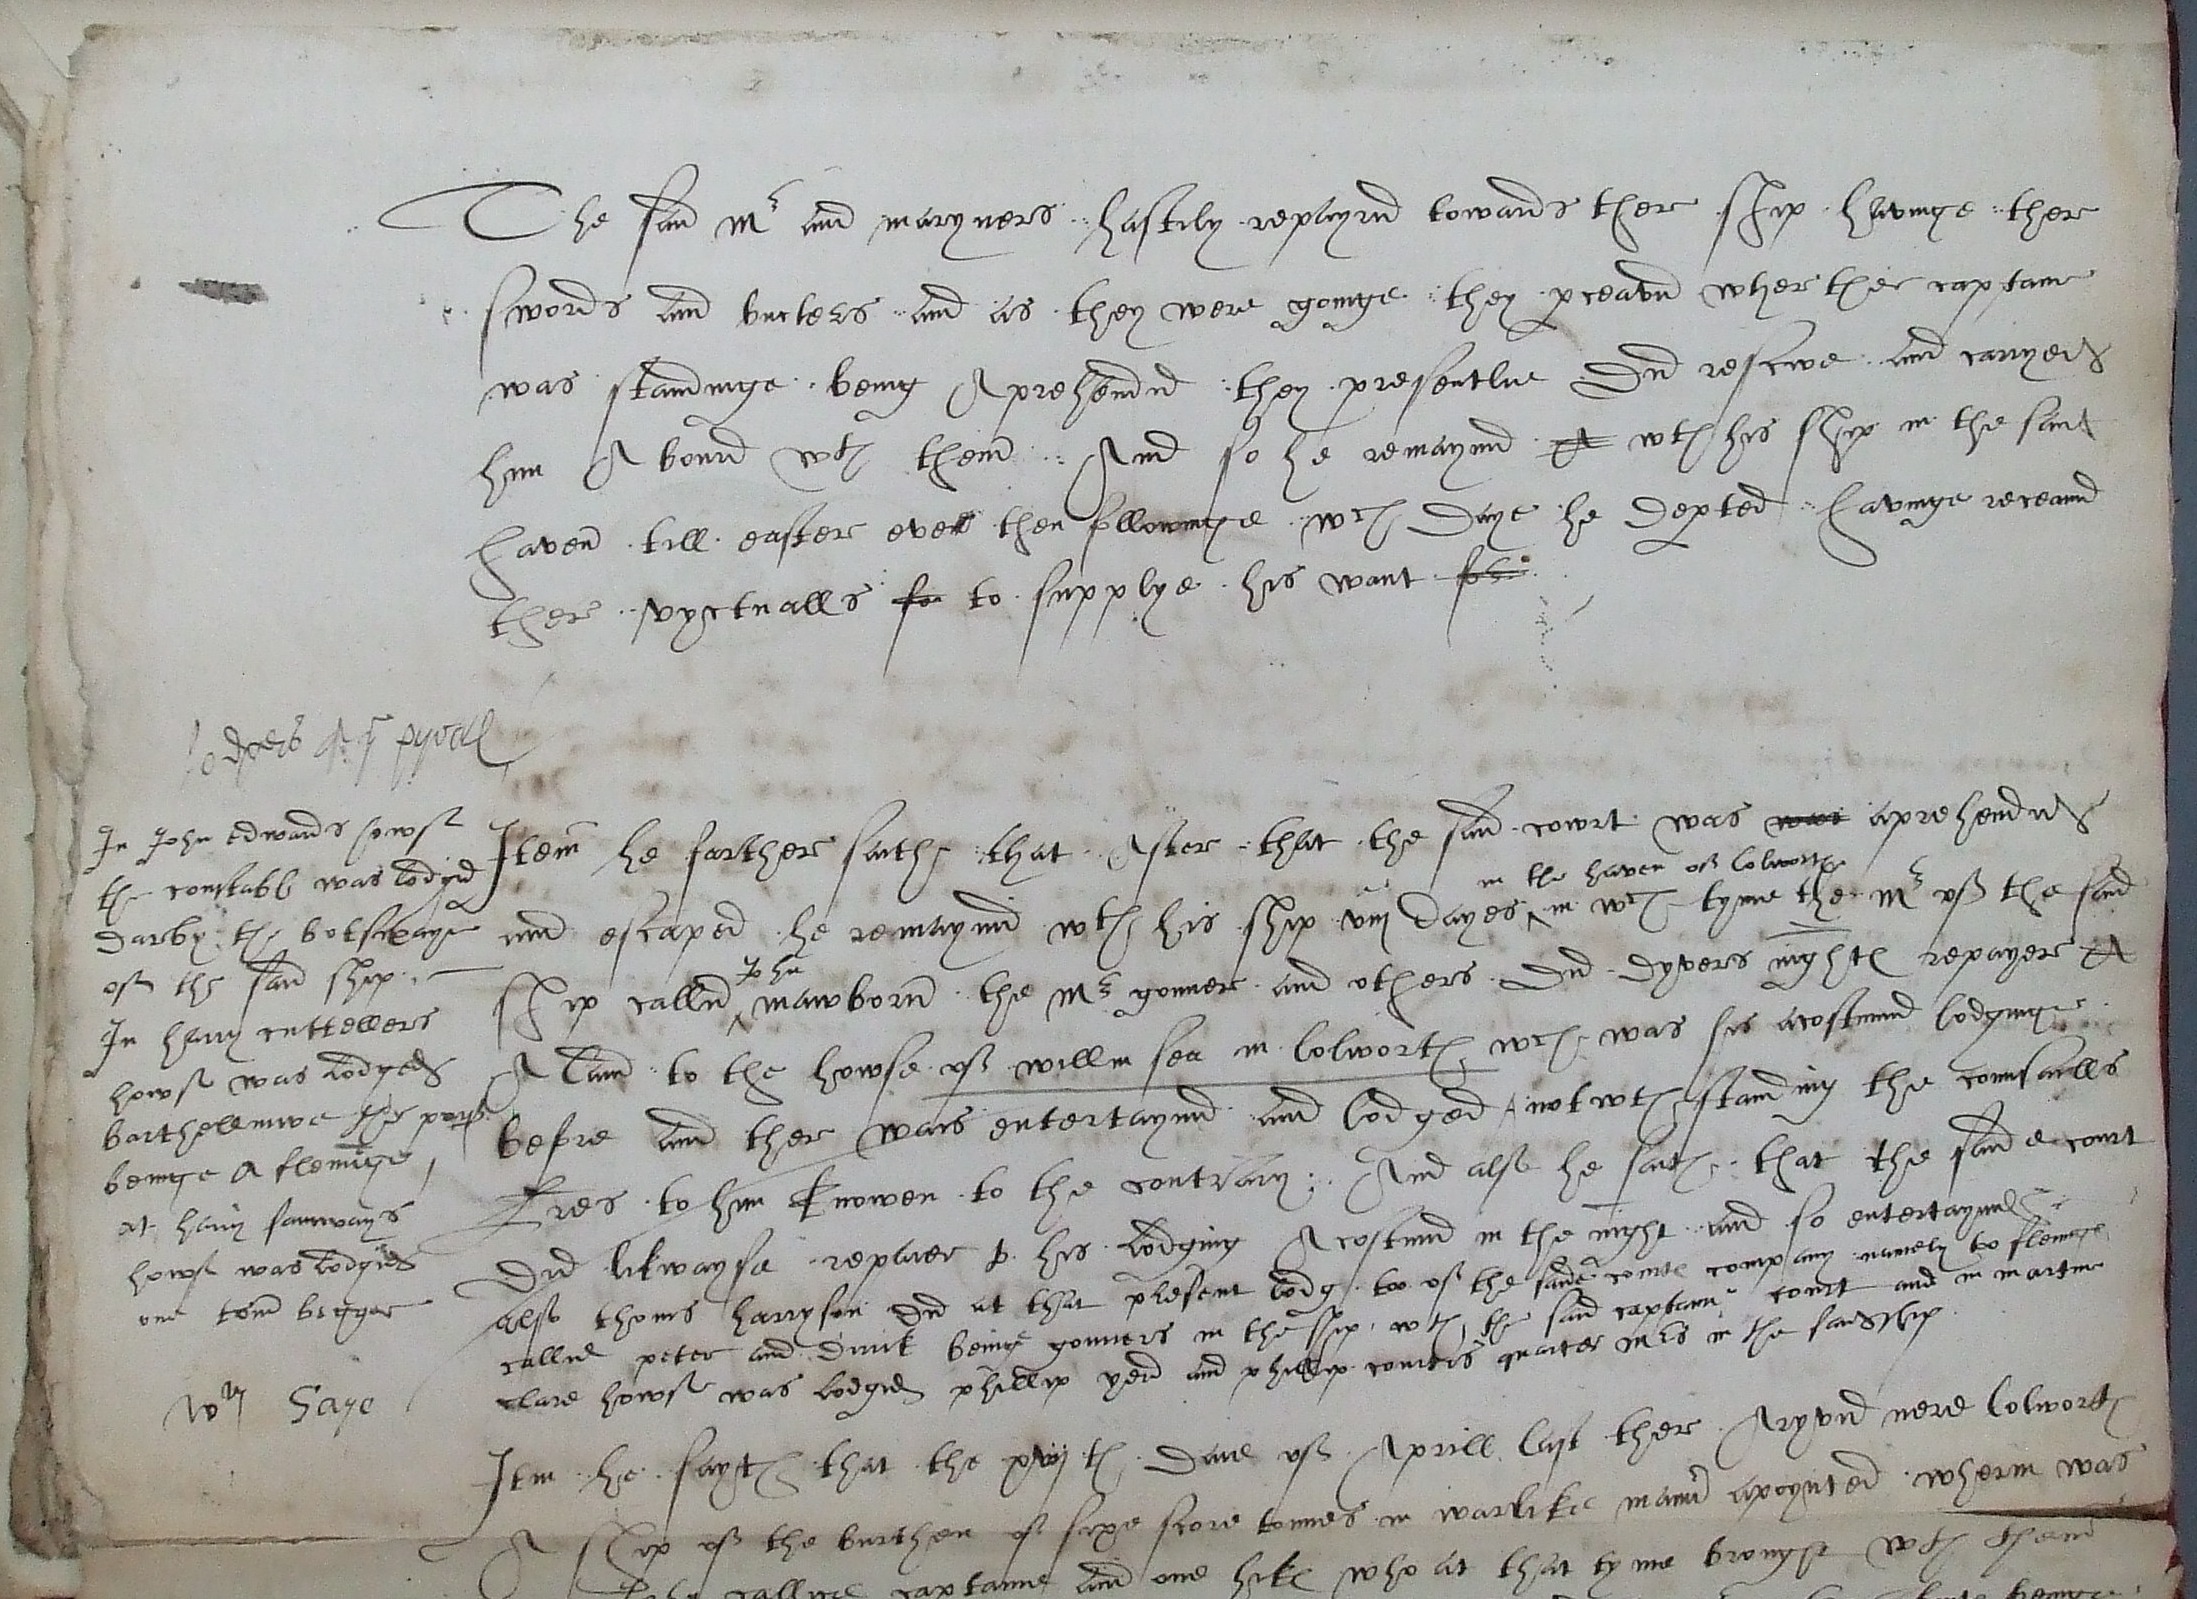 The said Mr and maryners hastily repayrd towards ther ship havinge ther
swords and bucklers and as they were goinge they pceavd wher ther captane
was standinge being Aprehendid they presentlie Did rescwe and carryed
him A bourd wth them And so he remaynid wth his ship in the said
haven till easter even then followinge wch Daye he depted havinge receavid
ther vyctualls for to supplye his want for
lodgers of ye pyratts
In John Edwards howse
the constable was lodgid
Darby the botswayne
of the said ship
In Harry cuttellers
howse was lodged
barthellmwe the
beinge A fleminge
at hary samways
howse was lodgid
one tom bigger
Wm Saye
Item he farther saithe that After that the said cowrt was was aprehendid
and escaped he remaynid wth his ship viij Dayes in the haven of lolworthe in wch tyme the Mr of the said
ship callid John mawborn the Mr gonner and others Did Dyvers nights repayer
A land to the howse of willm sea in lolworth wch was his acostumid lodginge
before and ther was entertaynid and lodged notwthstanding the counsailles
lres to him knowen to the contrary And also he saith that the saide court
Did likwayse repaier to his lodging Acostumd in the night and so entertaynid
also thoms harryson did at that present lodg too of the saide courte company namely to fleminge
callid peter and Dirik being gonners in the ship wth the said captaine court and in martine
clare howse was lodgid phillip yerd and phillip courtis quarter mrs in the said ship
Itm he sayth that the xvijth Daie of Aprill last ther Aryvid nere lolworth
A ship of the burthen of sixe score tonnes in warlike manr apoynted wherin was
callide captaine and one hike who at that tyme brought wth them